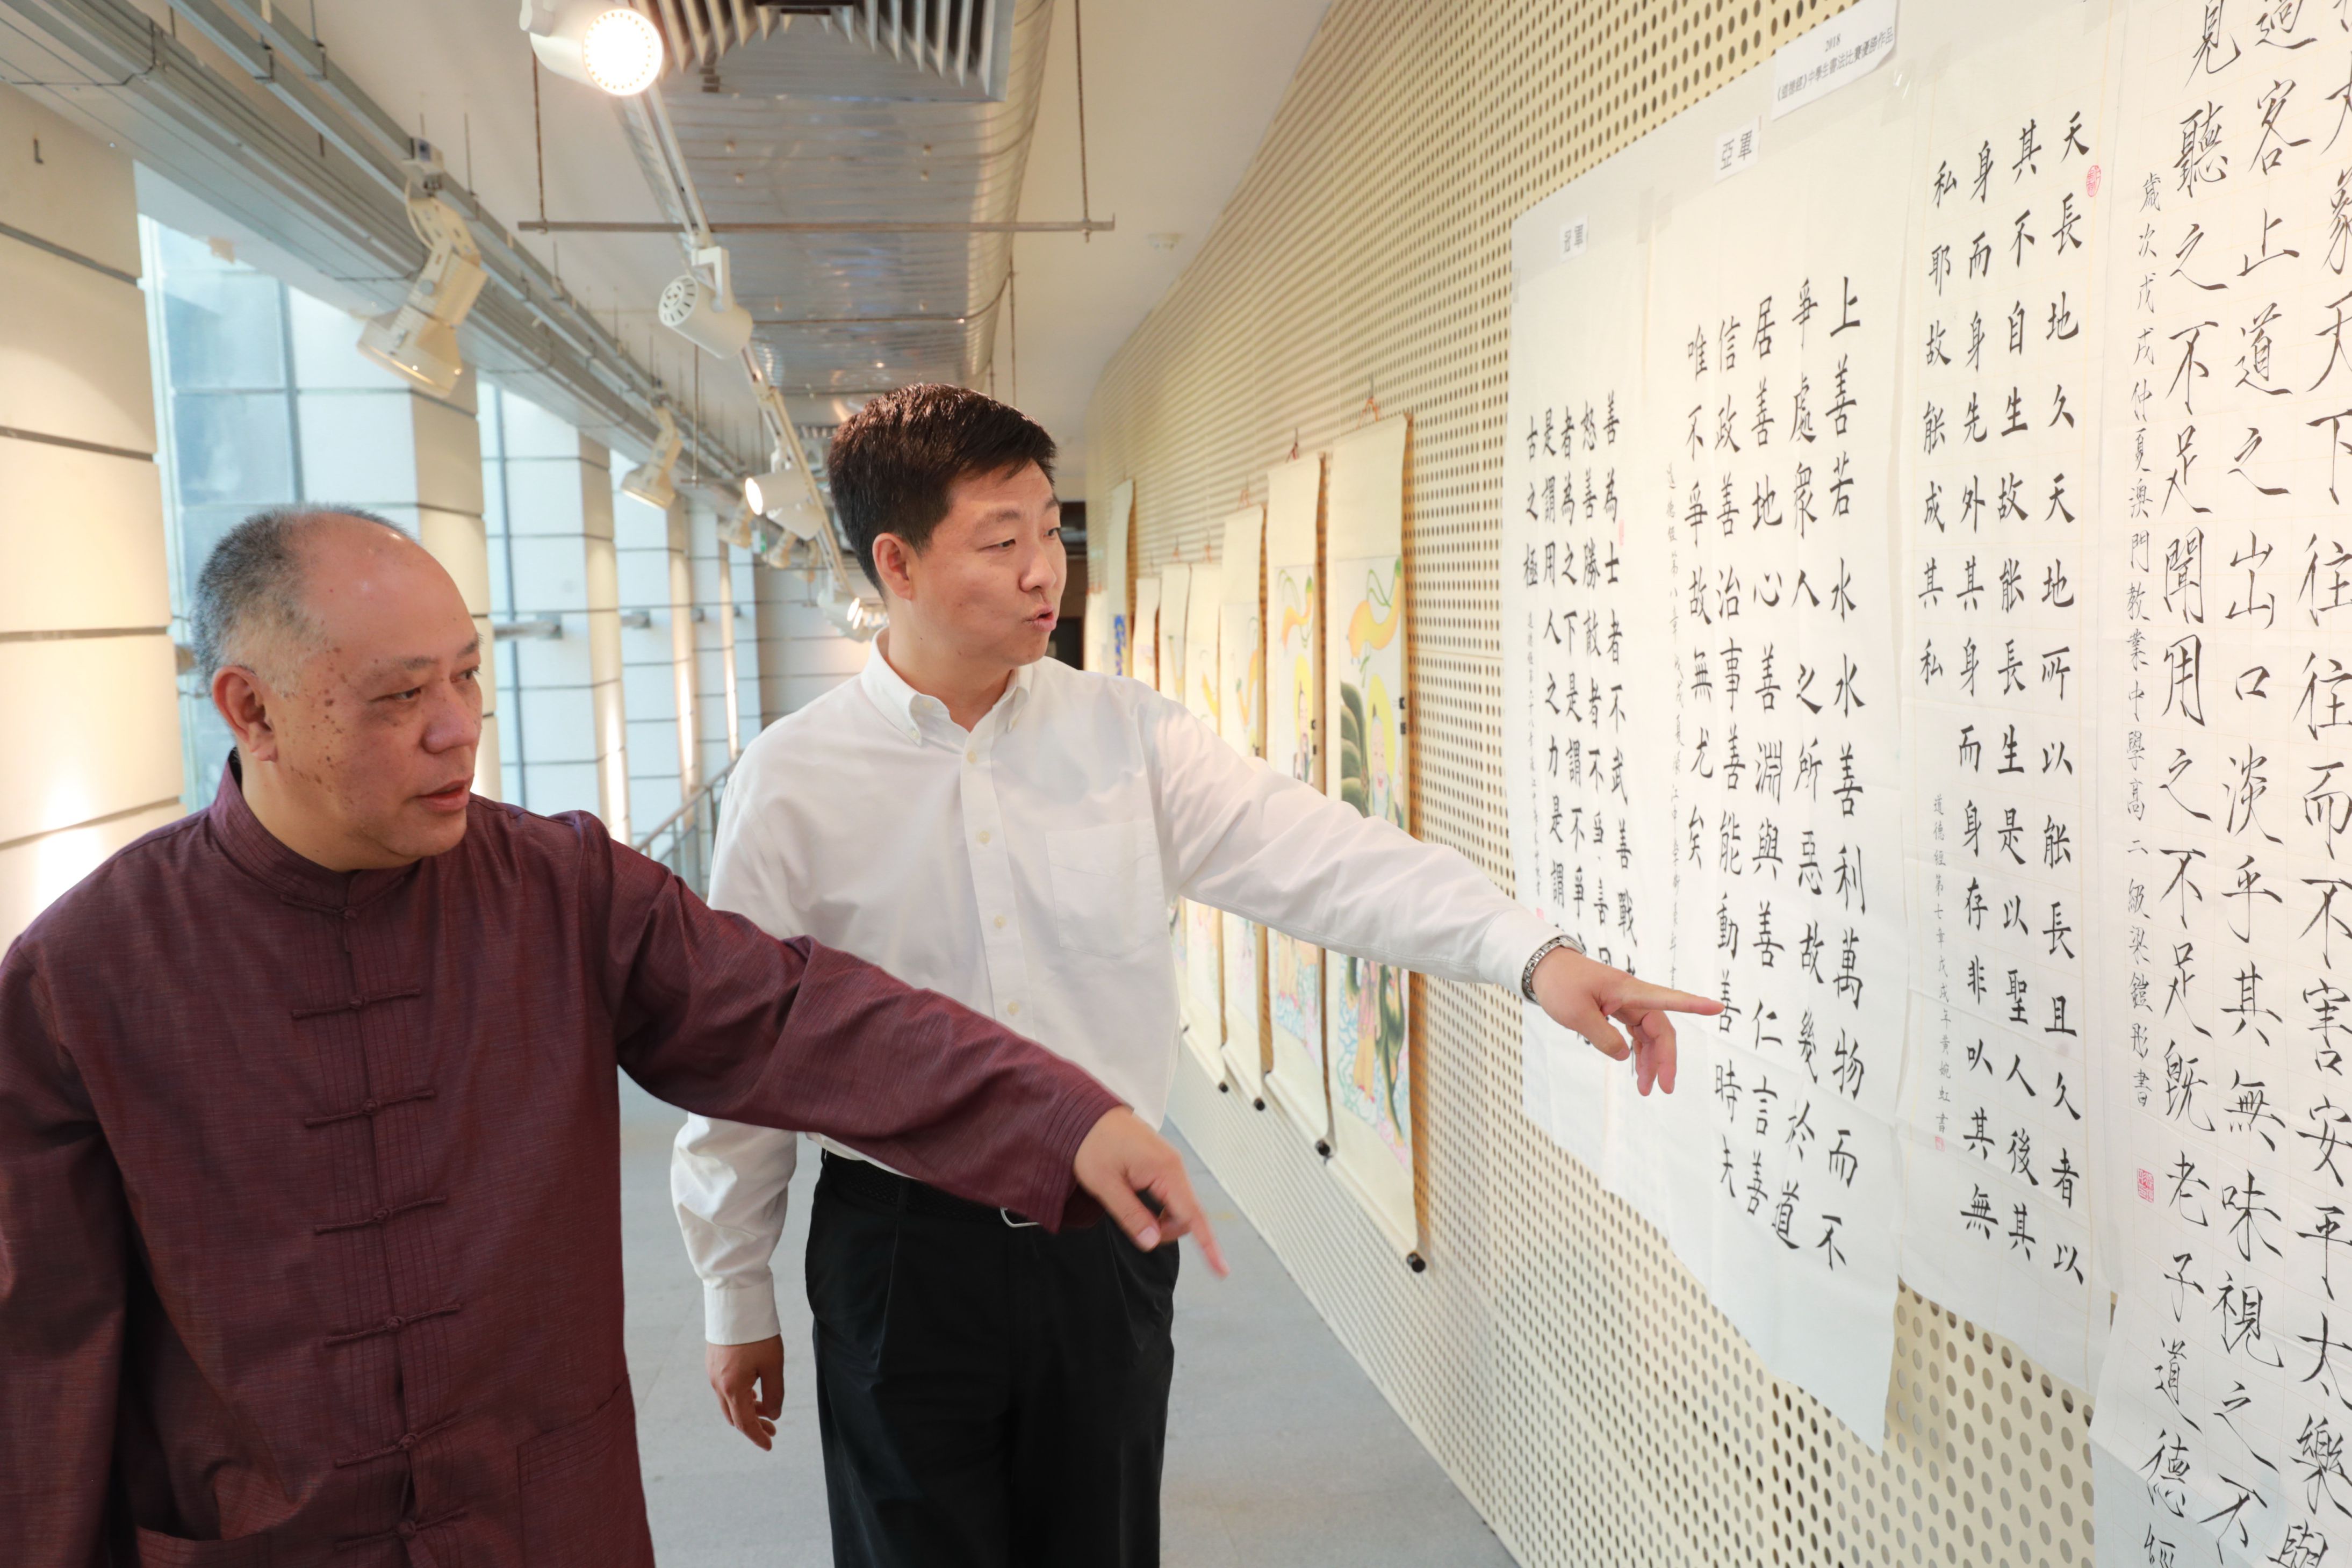 大象天下往往而不害安平太樂與
過客止道之出口淡乎其無味視之不
見聽之不足聞用之不足既老子道德經
歲次戊戌仲夏澳門教業中學高二級梁鎧彤書
天長地久天地所以能長且久者以
其不自生故能長生是以聖人後其
身而身先外其身而身存非以其無
私耶故能成其私
道德經第七章戊戌年黃婉虹書
2018
《道德經》中學生書法比賽優勝作品
亞軍
上善若水水善利萬物而不
爭處眾人之所惡故幾於道
居善地心善淵與善仁言善
信政善治事善能動善時夫
唯不爭故無尤矣
道德經第八章
冠軍
善為士者不武善戰
怒善勝敵者不爭善用
者為之下是謂不爭
是謂用人之力是謂
古之極